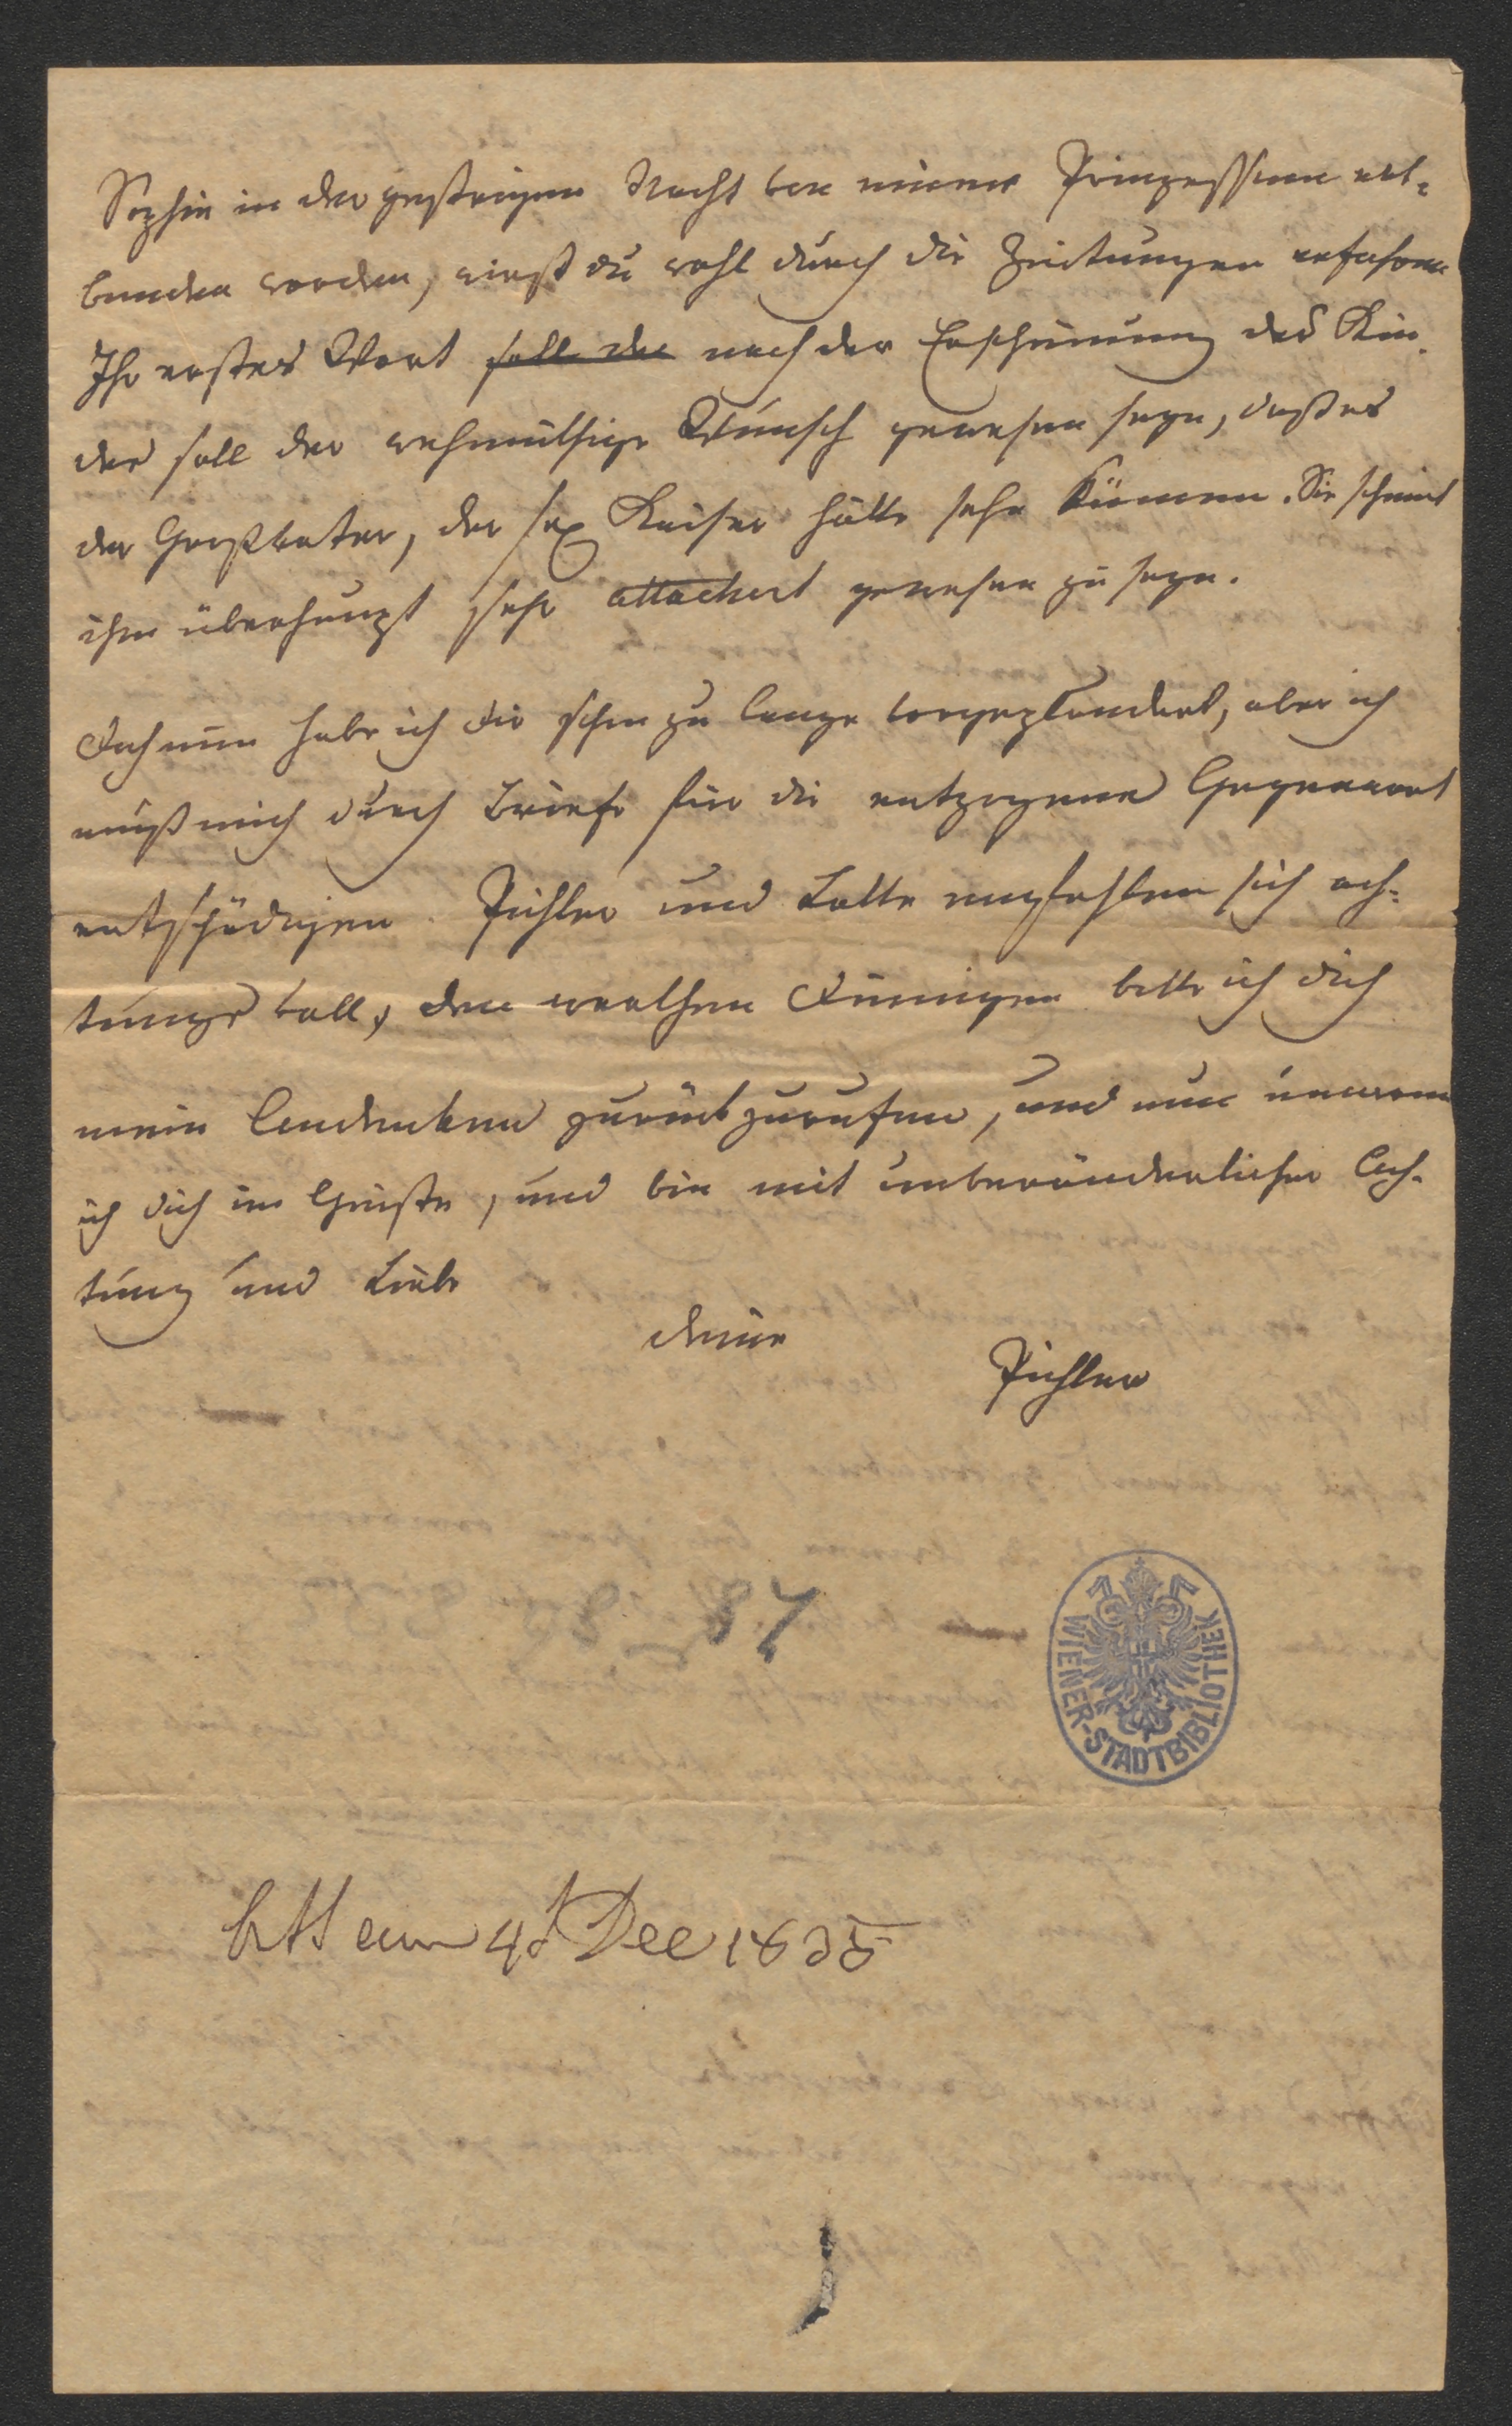 Sophie in der gestrigen Nacht von einer Prinzessinn ent-
bunden worden, wirst du wohl durch die Zeitungen erfahren
Ihr erstes Wort soll der nach der Erscheinung des Kin-
des soll der wehmüthige Wunsch gewesen seyn, daß es
der Großvater, der sel. Kaiser hätte sehn können. Sie scheint
ihm überhaupt sehr attachert gewesen zu seyn.
Doch nun habe ich dir schon zu lange vorgeplaudert, aber ich
muß mich durch Briefe für die entzogene Gegenwart
entschädigen. Pichler und Lotte empfehlen sich ach-
tungsvoll, den werthen Deinigen bitte ich dich
mein Andenken zurückzurufen, und nun umarme
ich dich im Geiste, und bin mit unveränderlicher Ach-
tung und Liebe
deine
Pichler
WIENER-STADTBIBLIOTHEK
am 4t Dec 1835